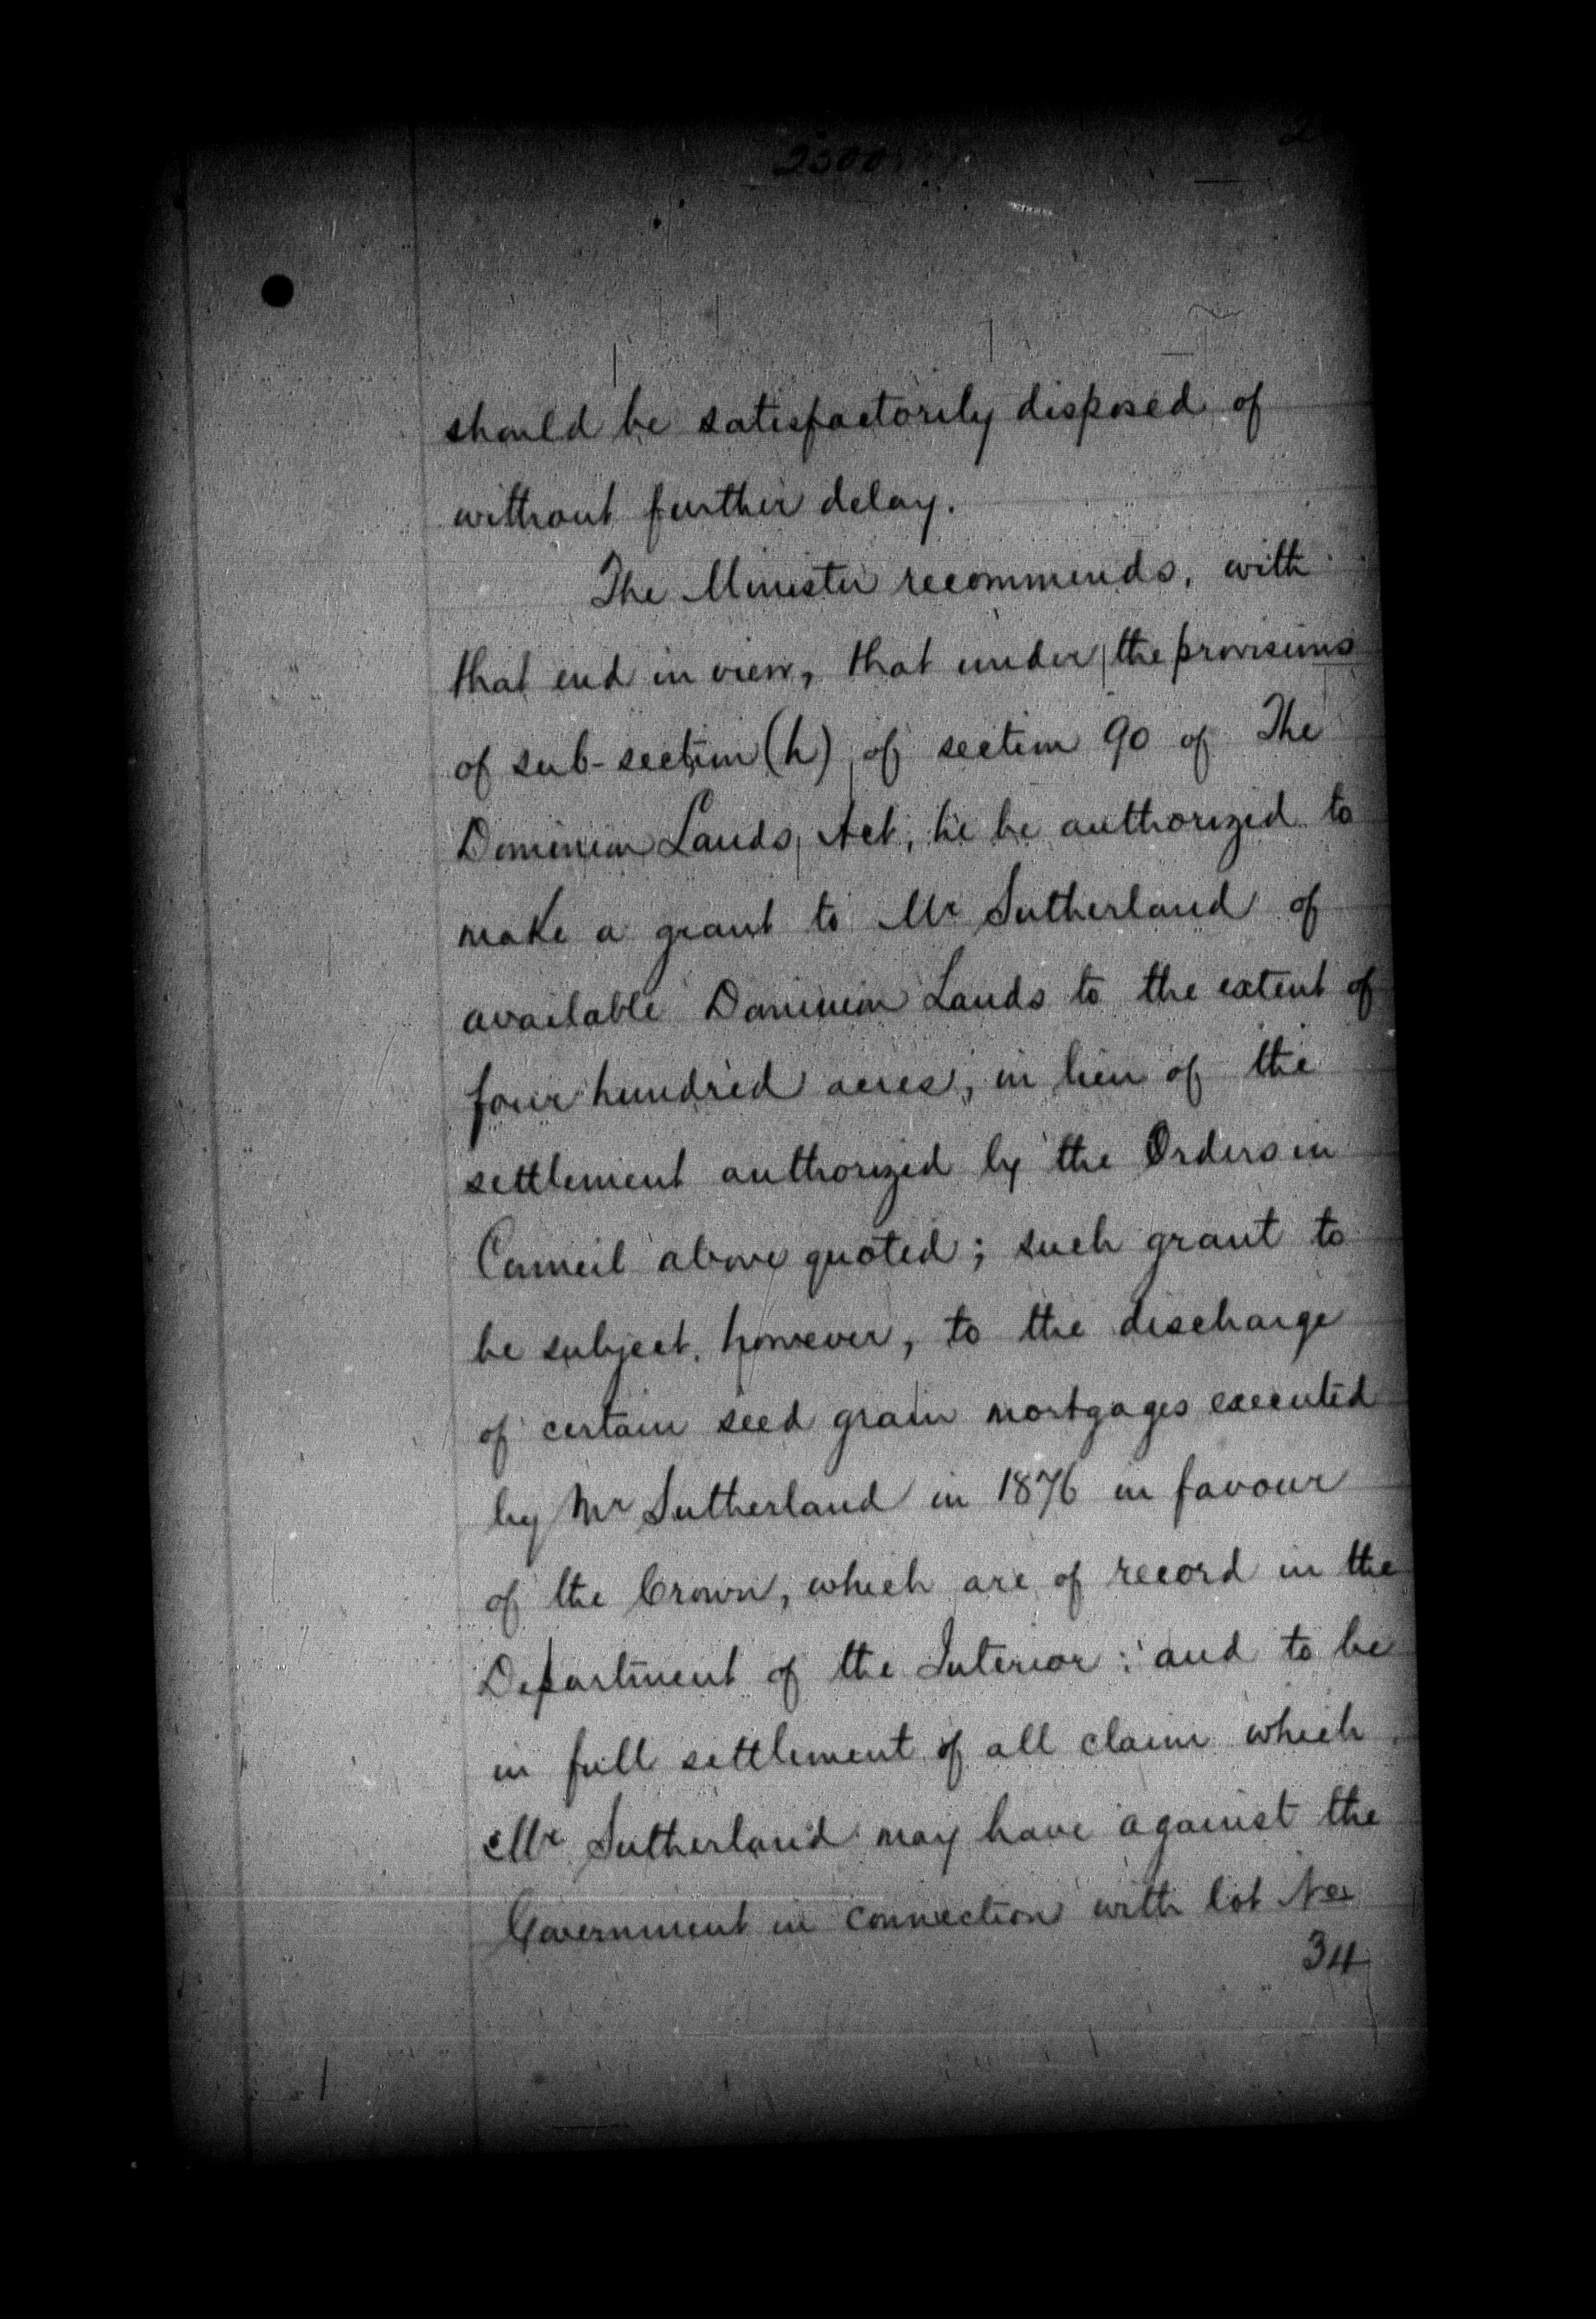 2300
2
should be satisfactorily disposed of
without further delay.
The Minister recommends, with
that end in view, that under the provisions
of sub-section (h) of section 90 of The
Dominion Lands Act, he be authorized to
make a grant to Mr Sutherland of
available Dominion Lands to the extent of
four hundred acres, in lieu of the
settlement authorized by the Orders in
Council above quoted; such grant to
be subject, however, to the discharge
of certain seed grain mortgages executed
by Mr Sutherland in 1876 in favour
of the Crown, which are of record in the
Department of the Interior: and to be
in full settlement of all claim which
Mr Sutherland may have against the
Government in connection with lot No
34